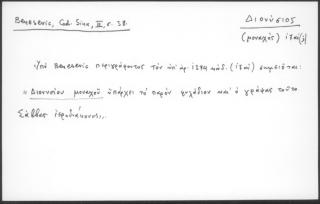 Benešević, Cod. Sin., III, σ. 28.
Διονύσιος
(μοναχὸς) ιζ' αἰ(;)
Ὑπὸ Benesevic περιγράφοντος τὸν ὑπ' ἀρ. 1274 κώδ. (ιζ' αἰ) σημειοῦται:
"Διονυσίου μοναχοῦ ὑπάρχει τὸ παρὸν ψυλάδιον καὶ ὁ γράψας τοῦτο
Σάββας ἱεροδιάκονος".